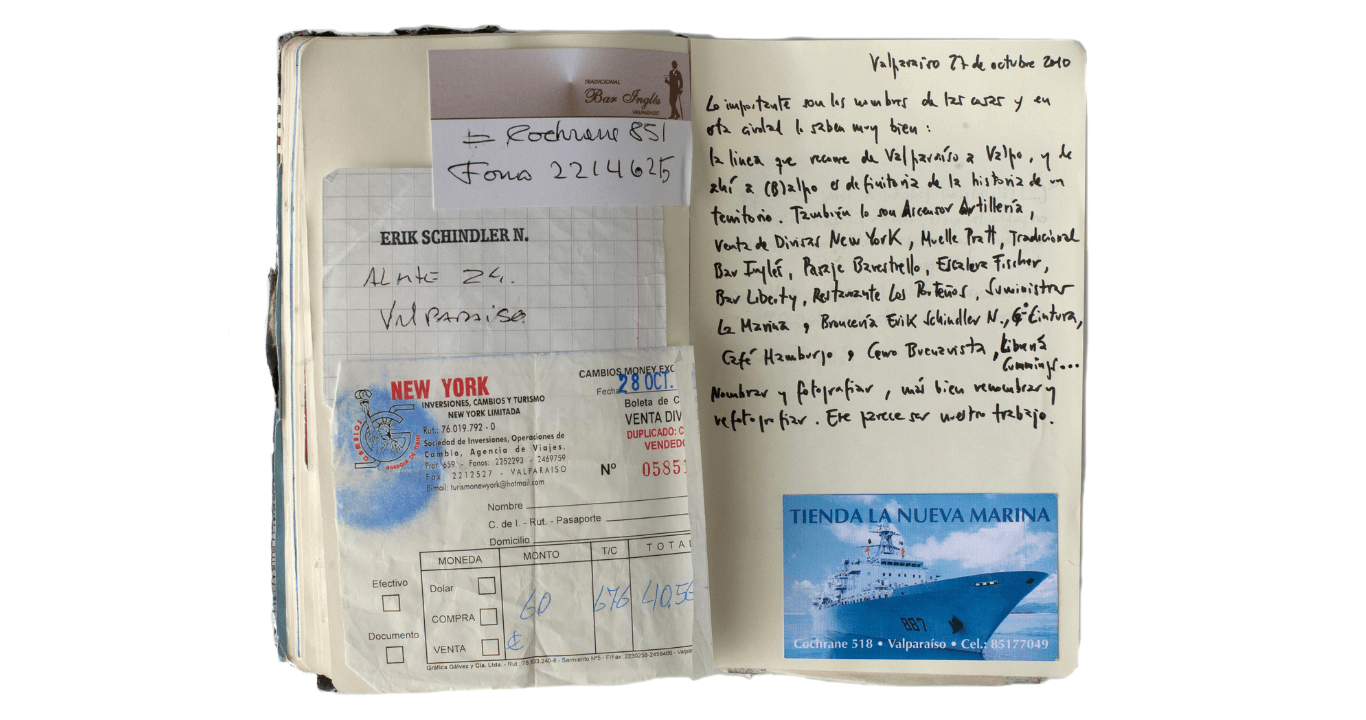 TRADICIONAL
Bar Inglés
VALPARAISO
Cochrane 851
Fono 2214625
ERIK SCHINDLER N.
ALMTE 24.
VALPARAISO
NEW YORK
INVERSIONES, CAMBIOS Y TURISMO
NEW YORK LIMITADA
Rut.: 76.019.792 - 0
Sociedad de Inversiones, Operaciones de
Cambio, Agencia de Viajes.
Prat 659 - Fonos: 2252293 - 2469759
Fax 2212527 - VALPARAISO
E-mail: turismonewyork@hotmail.com
CAMBIOS MONEY EXC
Fecha 28 OCT.
Boleta de C
VENTA DIV
DUPLICADO: C
VENDEDO
Nº 05851
Nombre
C. de I. - Rut. - Pasaporte
Domicilio
MONEDA MONTO T/C TOTAL
Efectivo
Documento
Dolar
COMPRA
VENTA
60 676 40.56
Gráfica Gálvez y Cía. Ltda. - Rut.: 78.893.240-8 - Sarmiento Nº5 - F/Fax: 2230256-2418408 - Valpar
Valparaíso 27 de octubre 2010
Lo importante son los nombres de las cosas y en
esta ciudad lo saben muy bien:
la línea que recorre de Valparaíso a Valpo, y de
ahí a (B)alpo es definitoria de la historia de un
territorio. También lo son Ascensor Artillería,
Venta de Divisas New York, Muelle Pratt, Tradicional
Bar Inglés, Pasaje Bavestrello, Escalera Fischer,
Bar Liberty, Restaurante Los Porteños, Suministros
La Marina, Broncería Erik Schindler N., Cº Cintura,
Café Hamburgo, Cerro Buenavista, Librería
Cummings...
Nombrar y fotografiar, más bien renombrar y
refotografiar. Ese parece ser nuestro trabajo.
TIENDA LA NUEVA MARINA
887
Cochrane 518 • Valparaíso • Cel.: 85177049